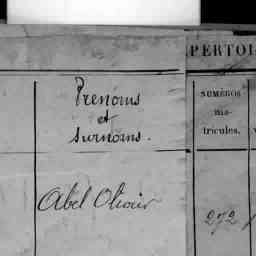 PERTOI
Prenoms
et
surnoms.
NUMÉROS
ma-
tricules.
Abel Olivir
272